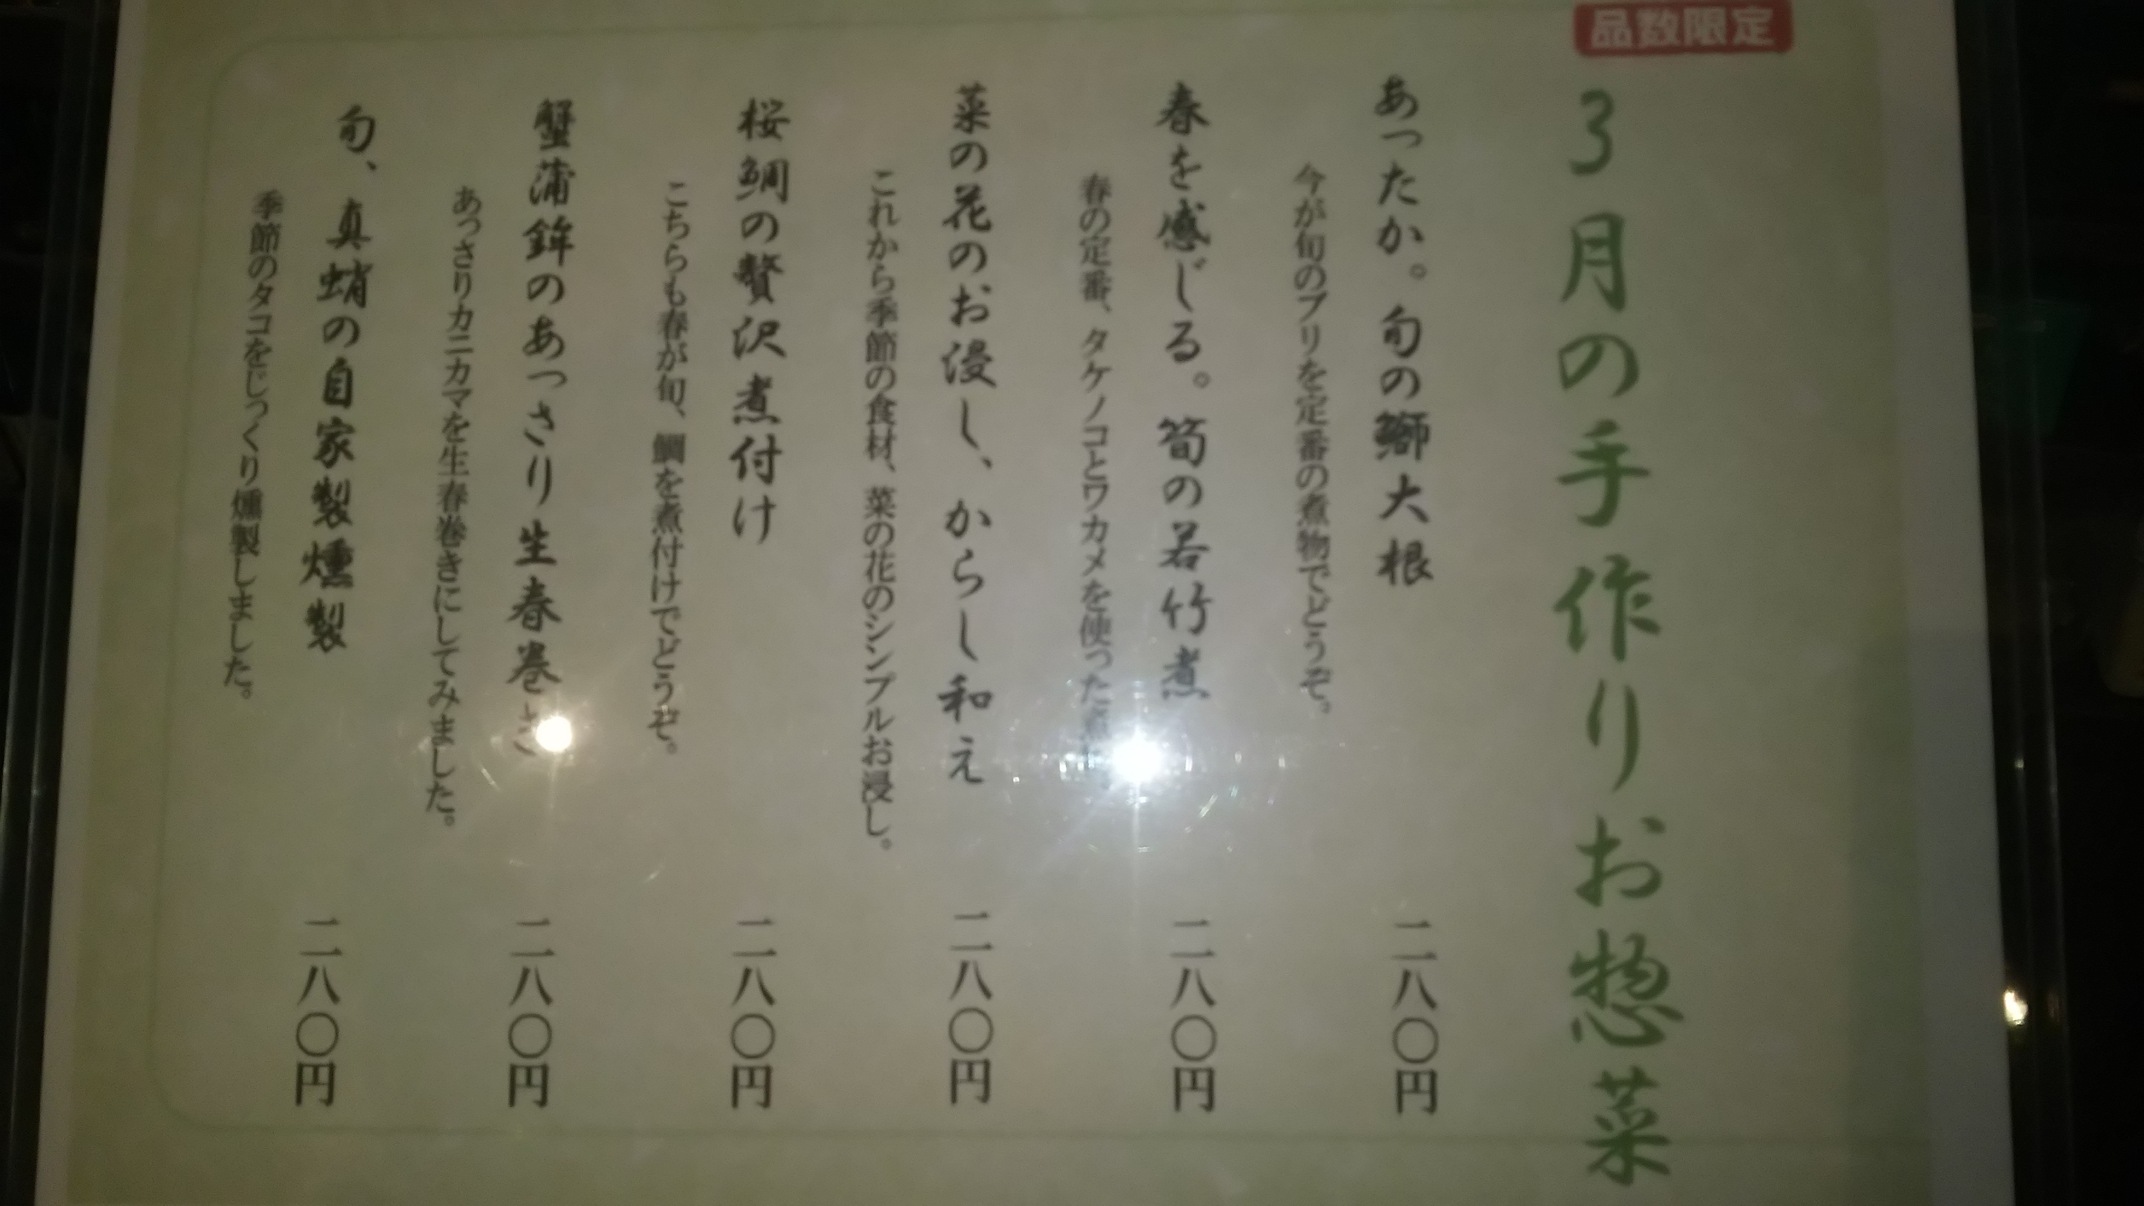 品数限定
3月の手作りお惣菜
あったか。旬の鰤大根
今が旬のブリを定番の煮物でどうぞ。
二八〇円
春を感じる。筍の若竹煮
春の定番、タケノコとワカメを使った
二八〇円
菜の花のお浸し、からし和え
これから季節の食材、菜の花のシンプルお浸し。
二八〇円
桜鯛の贅沢煮付け
こちらも春が旬、鯛を煮付けでどうぞ。
二八〇円
蟹蒲鉾のあっさり生春巻き
あっさりカニカマを生春巻きにしてみました。
二八〇円
旬、真蛸の自家製燻製
季節のタコをじっくり燻製しました。
二八〇円